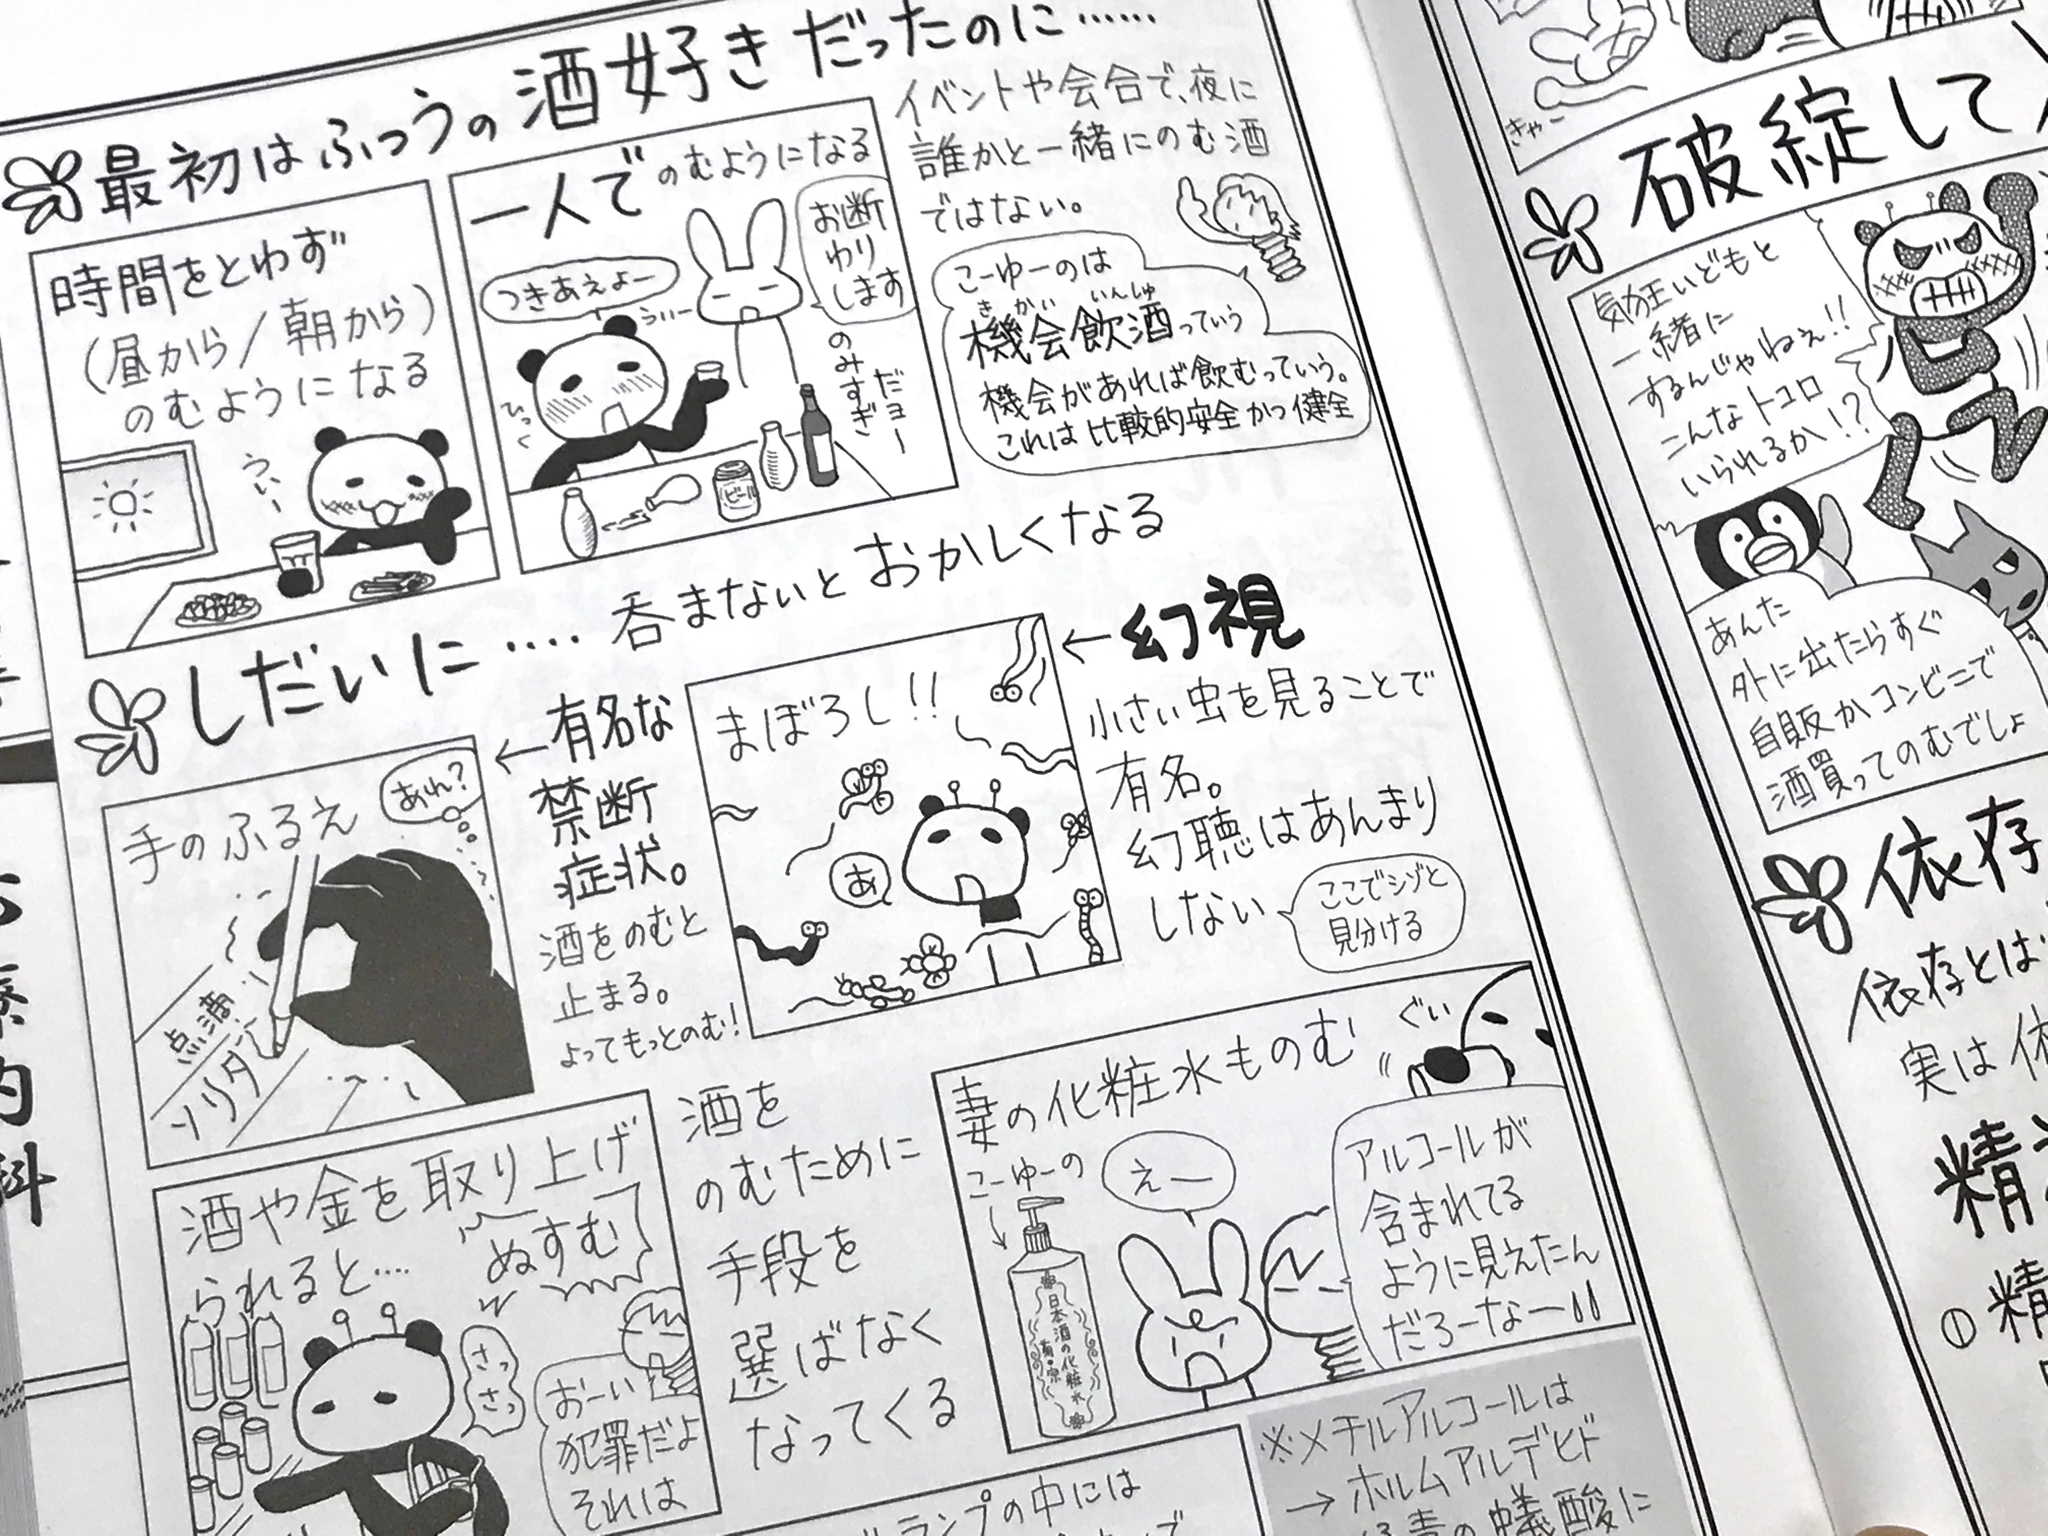 最初はふつうの酒好きだったのに……
時間をとわず
(昼から/朝から)
のむようになる
うぃー
一人でのむようになる
つきあえよー
うぃー
ひっく
お断
わり
します
のみすぎ
だヨー
ビール
イベントや会合で、夜に
誰かと一緒にのむ酒
ではない。
こーゆーのは
きかい いんしゅ
機会飲酒っていう
機会があれば飲むっていう。
これは比較的安全かつ健全
しだいに‥‥呑まないとおかしくなる
手のふるえ
あれ?
点滴
ソリタ
←有名な
禁断
症状。
酒をのむと
止まる。
よってもっとのむ!
まぼろし!!
あ
←幻視
小さい虫を見ることで
有名。
幻聴はあんまり
しない
ここでシゾと
見分ける
酒や金を取り上げ
られると‥‥
ぬすむ
さっ
さっ
おーい
犯罪だよ
それは
酒を
のむために
手段を
選ばなく
なってくる
妻の化粧水ものむ
ぐい
こーゆーの
えー
日本酒の化粧水
アルコールが
含まれてる
ように見えたん
だろーなー
ランプの中には
※メチルアルコールは
→ホルムアルデヒド
蟻酸に
きゃー
破綻して
気狂いどもと
一緒に
するんじゃねぇ!!
こんなトコロ
いられるか!?
あんた
外に出たらすぐ
自販かコンビニで
酒買ってのむでしょ
依存
依存とは
実は依
精
①精
内
科